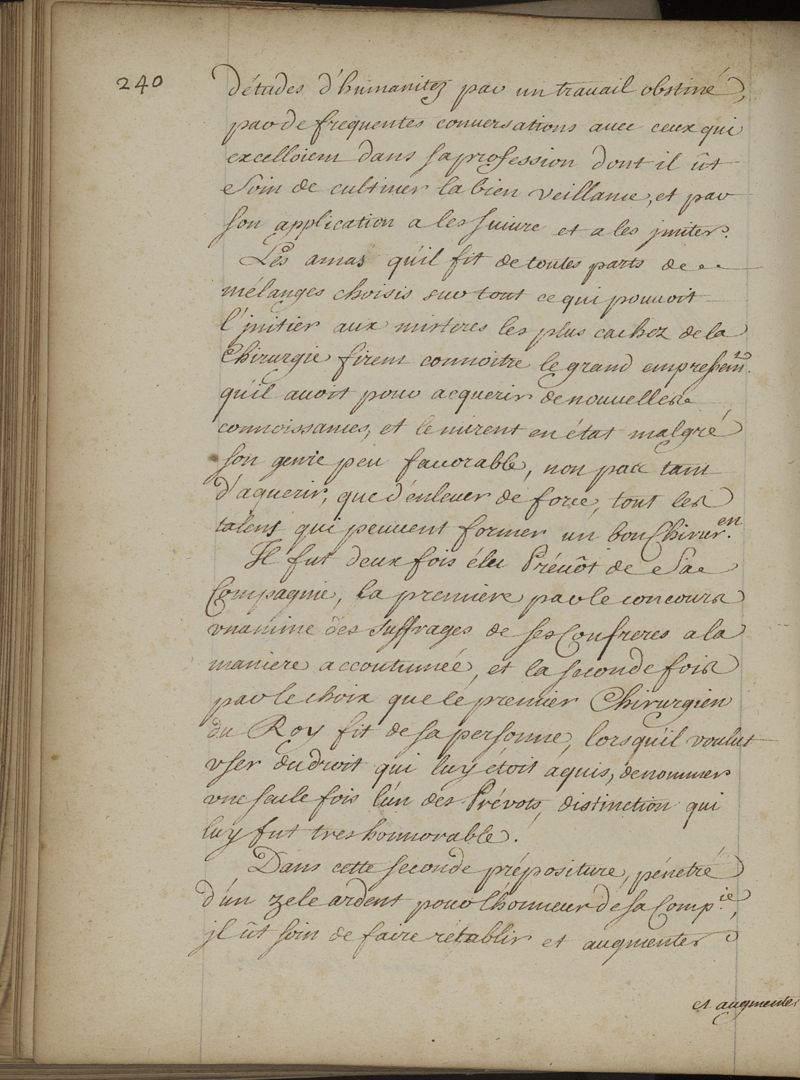 240
d'études d'humanitez par un travail obstiné,
par de frequentes conversations avec ceux qui
excelloient dans sa profession dont il ût
Soin de cultiver la bien veillance, et par
son application a les suivre et a les jmiter.
Les amas qu'il fit de toutes parts de
mélanges choisis sur tout ce qui pouvoit
l'jnitier aux misteres les plus cachez de la
Chirurgie firent connoitre le grand empressem.t
qu'il avoit pour acquerir de nouvelles
connoissances, et le mirent en état malgré
son genie peu favorable, non par tant
d'aquerir, que d'enlever de force, tout les
talens qui peuvent former un bon Chirur.en
Il fut deux fois élu Prévôt de Sa
Compagnie, la premiere par le concours
vnanime des suffrages de ses Confreres a la
maniere accoutumée, et la seconde fois
par le choix que le premier Chirurgien
du Roy fit de sa personne, lorsqu'il voulut
vser du droit qui luy étoit aquis, de nommer
vne seule fois l'un des Prévots, distinction qui
luy fut tres honnorable.
Dans cette seconde prépositure, pénetré
d'un zele ardent pour l'honneur de sa Comp.ie,
jl ût soin de faire rétablir et augmenter
et augmenter